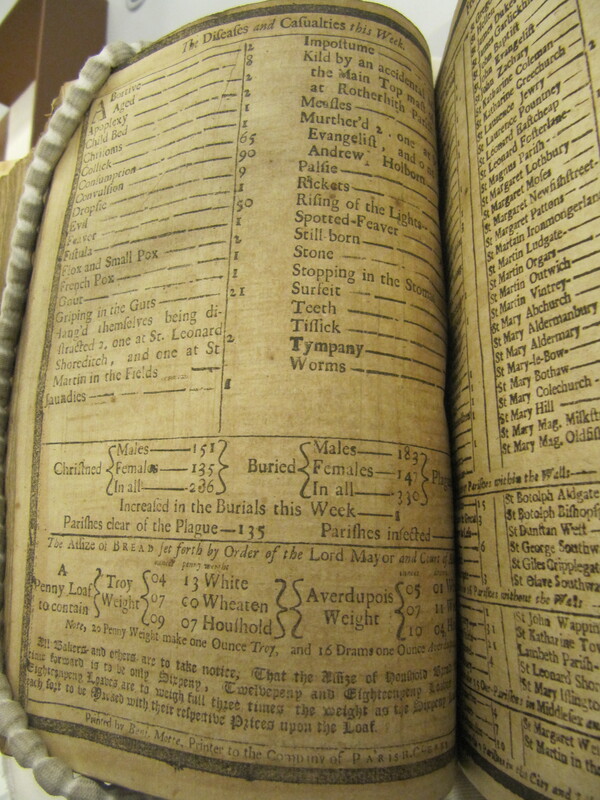 The Diseases and Casualties this Week.
Abortive
Aged
Apoplexy
Child Bed
Chrisoms
Collick
Consumption
Convulsion
Dropsie
Evil
Feaver
Fistula
Flox and Small Pox
French Pox
Gout
Griping in the Guts
Hang'd themselves being di-
stracted 2, one at St. Leonard
Shoreditch, and one at St
Martin in the Fields
Jaundies
2
8
1
2
1
1
65
90
9
1
50
1
2
1
1
21
2
1
Impostume
Kild by an accidental
the Main Top
at Rotherhith
Measles
Murther'd 2. one
Evangelist, and
Andrew Holborn
Palsie
Rickets
Rising of the Lights
Spotted-Feaver
Still-born
Stone
Stopping in the
Surfeit
Teeth
Tissick
Tympany
Worms
Christned { Males — 151 Females — 135 In all — 286 }
Buried { Males — 183 Females — 147 In all — 330 }
Increased in the Burials this Week — 1
Parishes clear of the Plague — 135 Parishes infected —
The Assize of BREAD set forth by Order of the Lord Mayor and Court of
A
Penny Loaf
to contain
Troy
Weight
04 13 White
07 00 Wheaten
09 07 Houshold
Averdupois
Weight
05
07
10
Note, 20 Penny Weight make one Ounce Troy, and 16 Drams one Ounce
All Bakers and others are to take notice, That the Assize of Houshold
time forward is to be only Sixpeny, Twelvepeny and Eighteenpeny Loaves
Eighteenpeny Loaves are to weigh full three times the weight as the Sixpeny
each sort to be Marked with their respective Prices upon the Loaf.
Printed by Benj. Motte, Printer to the Company of PARISH-
St John Baptist
St John Evangelist
St John Zachary
St Katharine Coleman
St Katharine Creechurch
St Lawrence Jewry
St Lawrence Pountney
St Leonard Eastcheap
St Leonard Fosterlane
St Magnus Parish
St Margaret Lothbury
St Margaret Moses
St Margaret Newfishstreet
St Margaret Pattons
St Martin Ironmongerlane
St Martin Ludgate
St Martin Orgars
St Martin Outwich
St Martin Vintrey
St Mary Abchurch
St Mary Aldermanbury
St Mary Aldermary
St Mary-le-Bow
St Mary Bothaw
St Mary Colechurch
St Mary Hill
St Mary Mag. Milkst
St Mary Mag. Oldfi
Parishes within the Walls
St Botolph Aldgate
St Botolph Bishops
St Dunstan West
St George Southw
St Giles Cripplegate
St Olave Southwa
Parishes without the Walls
St John Wappin
St Katharine Tow
Lambeth Parish
St Leonard Shor
St Mary Islington
Parishes in Middlesex and
St Margaret We
St Martin in th
Parishes in the City and